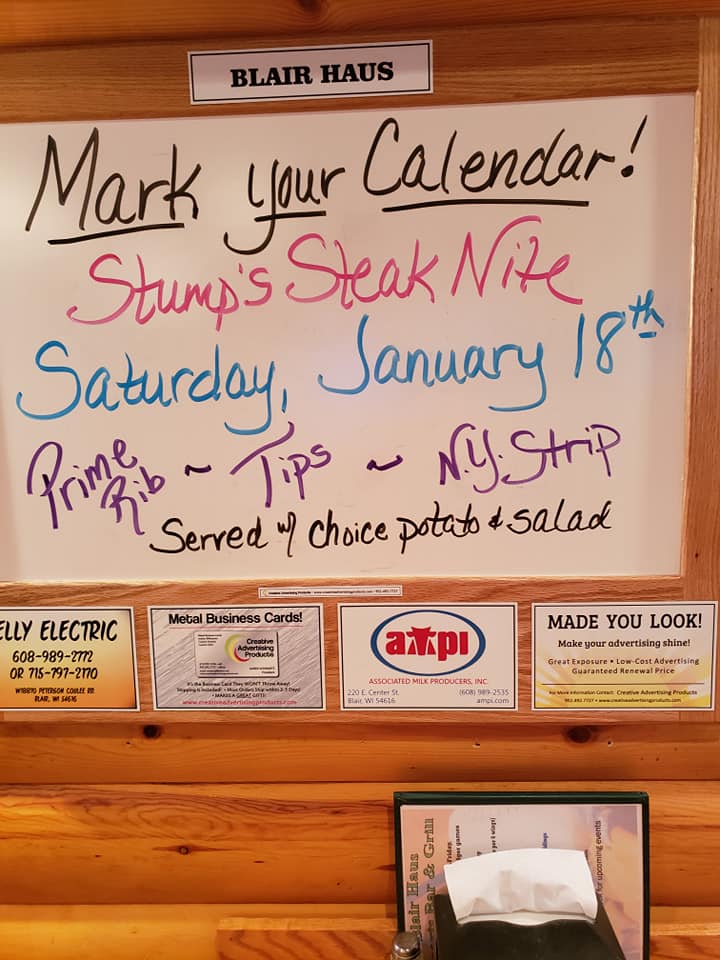 BLAIR HAUS
Mark your Calendar!
Stump's Steak Nite
Saturday, January 18th
Prime Rib ~ Tips ~ N.Y. Strip
Served w/ choice potato & salad
ELLY ELECTRIC
608-989-2772
OR 715-797-2170
W18870 PETERSON COULEE RD.
BLAIR, WI 54616
Metal Business Cards!
Creative
Advertising
Products
It's the Business Card They WON'T Throw Away!
Shipping is Included! • Most Orders Ship within 2-3 Days
• MAKES A GREAT GIFT!
www.creativeadvertisingproducts.com
ampi
ASSOCIATED MILK PRODUCERS, INC.
220 E. Center St. (608) 989-2535
Blair, WI 54616 ampi.com
MADE YOU LOOK!
Make your advertising shine!
Great Exposure • Low-Cost Advertising
Guaranteed Renewal Price
For More Information Contact: Creative Advertising Products
952.492.7727 • www.creativeadvertisingproducts.com
Blair Haus
Bar & Grill
for upcoming events